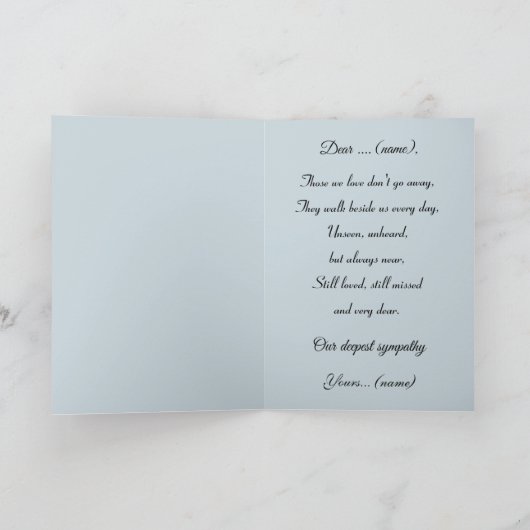 Dear .... (name),
Those we love don't go away,
They walk beside us every day,
Unseen, unheard,
but always near,
Still loved, still missed
and very dear.
Our deepest sympathy
Yours... (name)